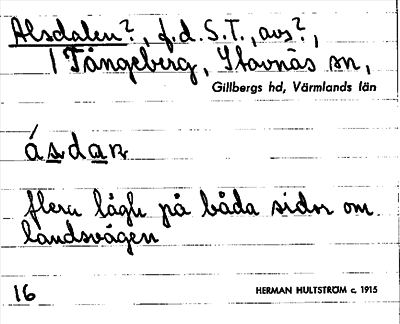 Alsdalen?, f.d. S.T., avs?,
1 Tångeberg, Stavnäs sn,
Gillbergs hd, Värmlands län
ásdan
flera lägh på båda sidor om
landsvägen
16 HERMAN HULTSTRÖM c. 1915